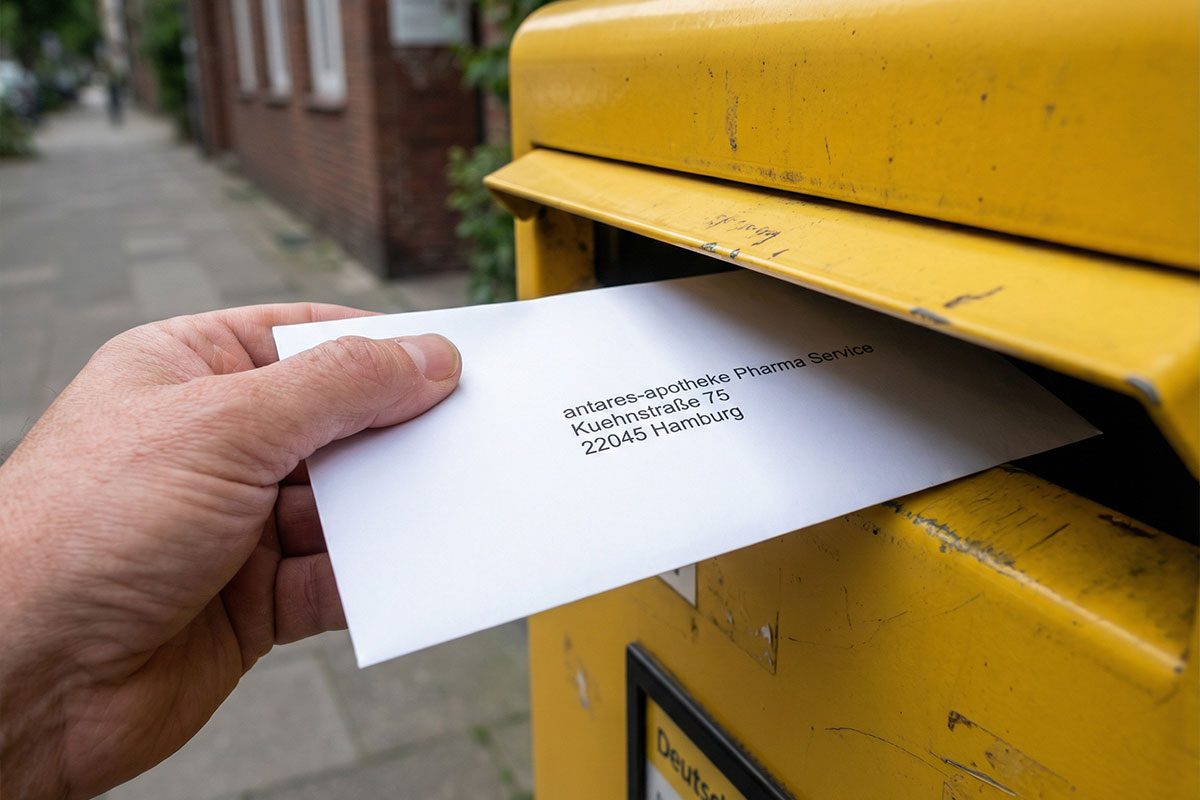 antares-apotheke Pharma Service
Kuehnstraße 75
22045 Hamburg